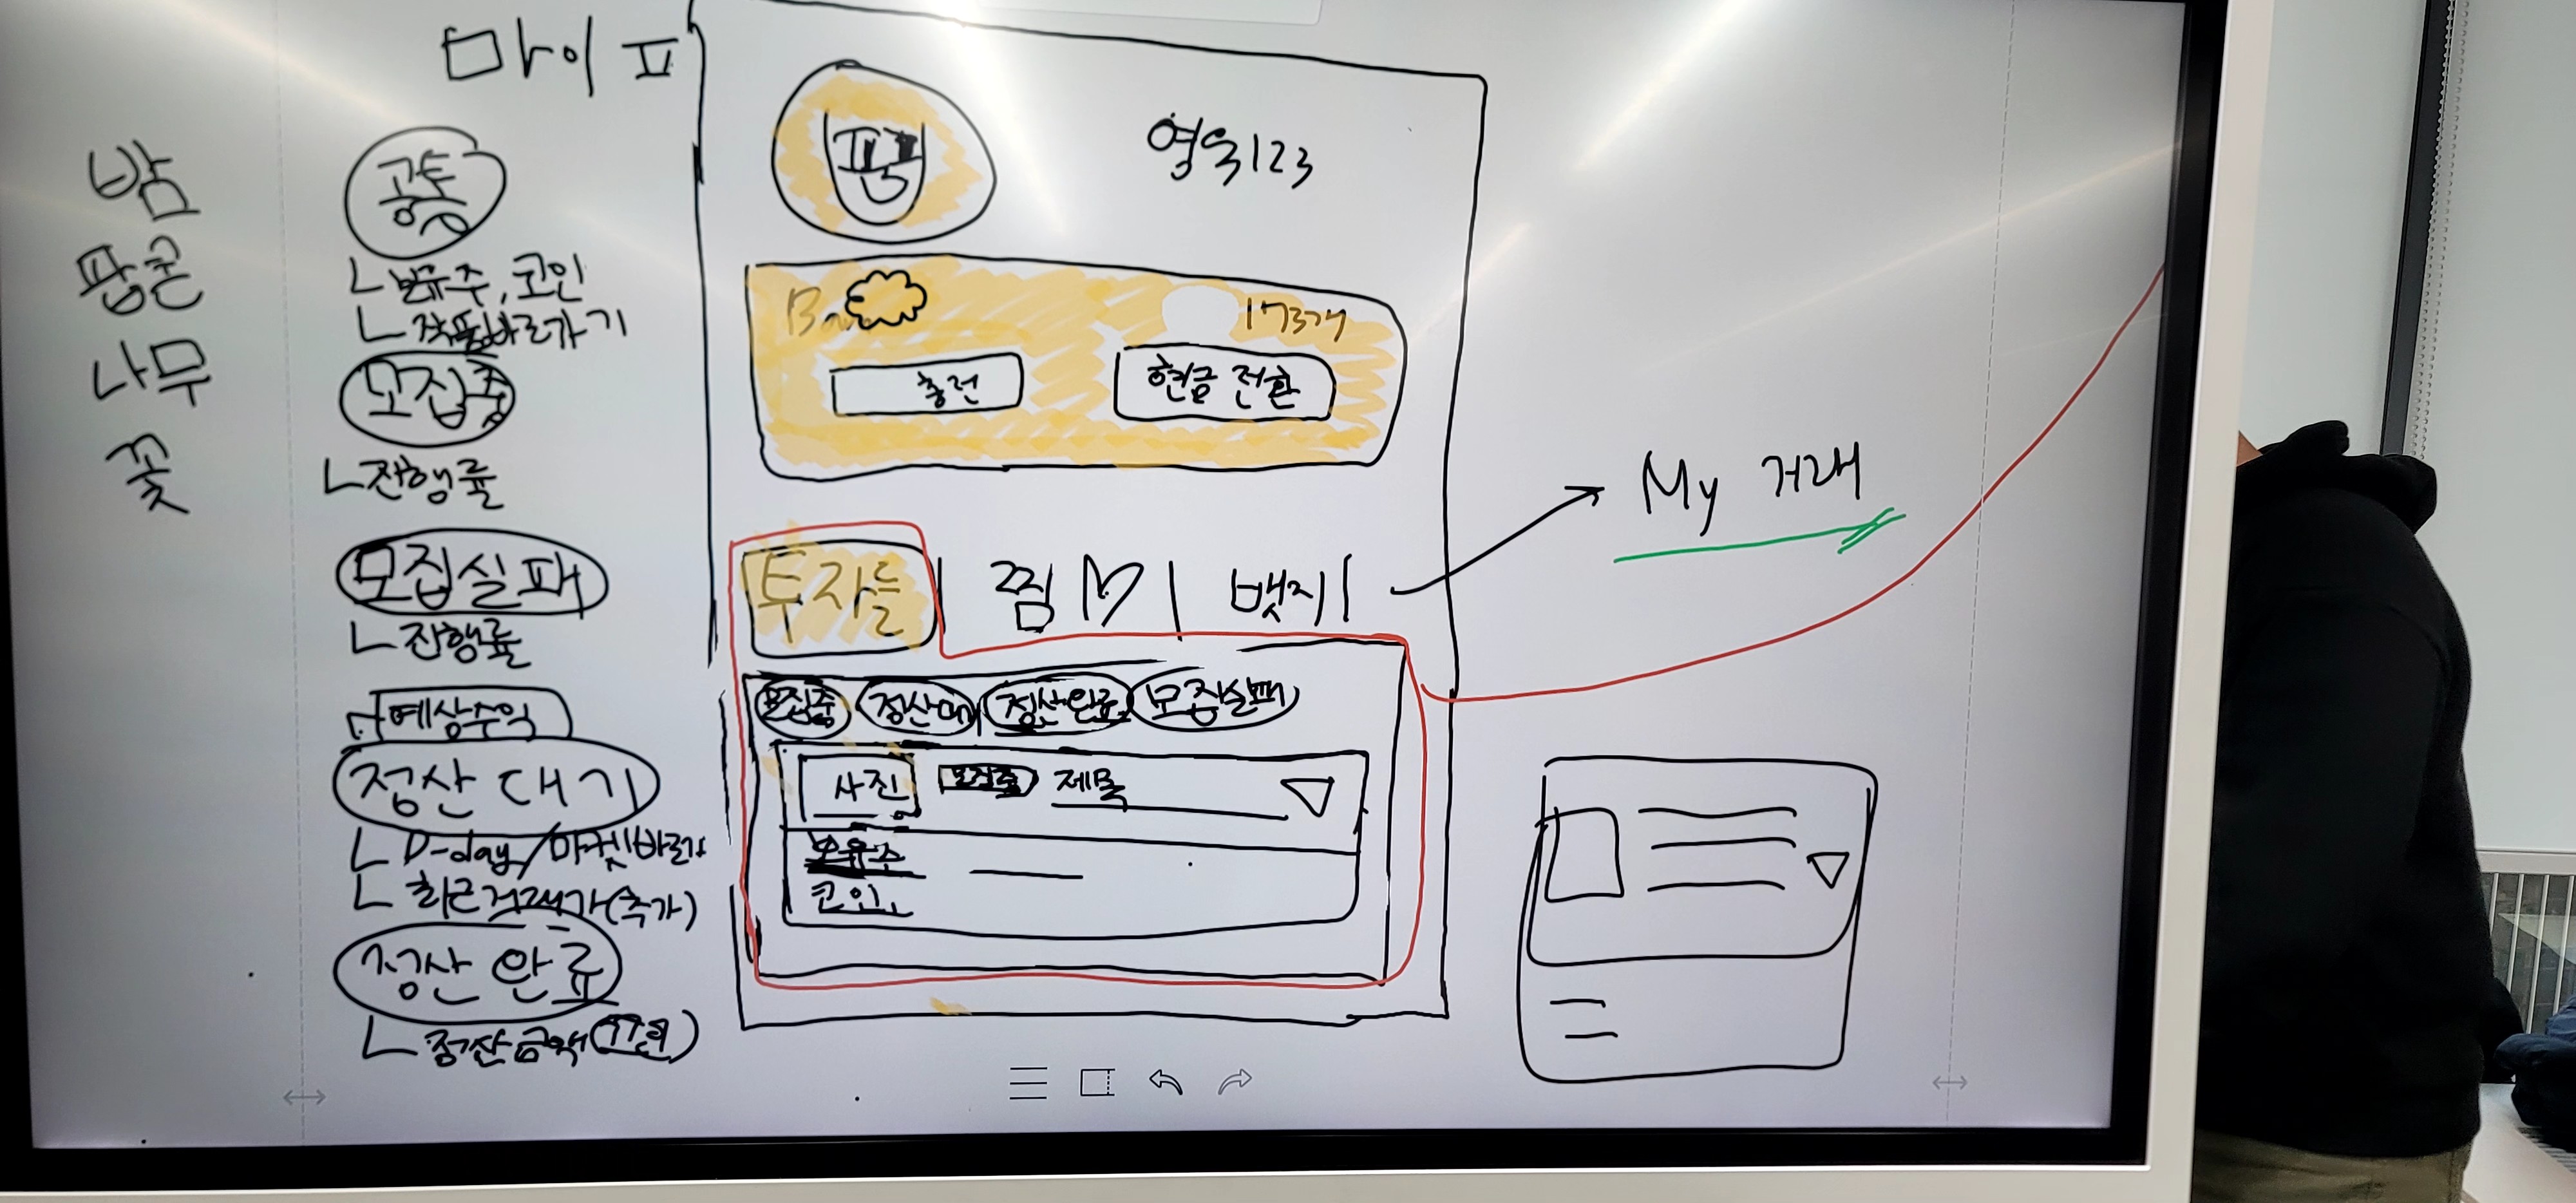 마이 ㅍ
밤
팝콘
나무
꽃
공통
ㄴ보유주, 코인
ㄴ작품바로가기
모집중
ㄴ진행률
모집실패
ㄴ진행률
예상수익
정산 대기
ㄴD-day/마켓바로가
ㄴ최근거래가(추가)
정산 완료
ㄴ정산금액
영욱123
173개
충전
현금 전환
투자들 | 찜 ♡ | 뱃지 |
My 거래
모집중 정산대 정산완료 모집실패
사진 모집중 제목
보유주
코인